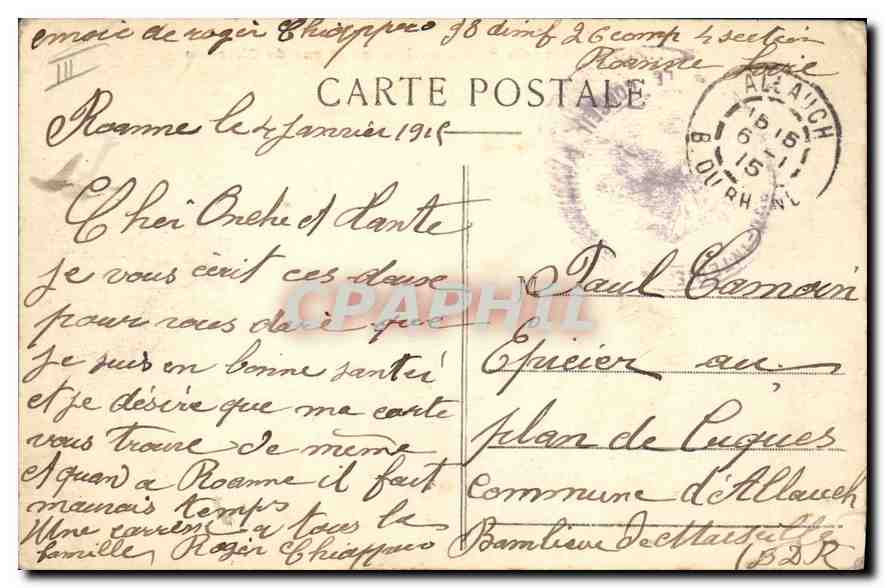 envoie de roger Chiappero 98 dinf 26 comp 4 section
Roanne Loire
III
CARTE POSTALE
Roanne le 4 Janvier 1915
Cher Oncle et Tante
je vous écrit ces deux
pour vous dire que
je suis en bonne santé
et je désire que ma carte
vous trouve de même
et quand a Roanne il fait
mauvais temps
Une caresse a tous la
famille, Roger Chiappero
ALLAUCH
15 15
6 - 1
15
B. DU RHONE
M Paul Camoin
Epicier au
plan de Cuques
commune d'Allauch
Banlieue de Marseille
(BDR
CPAPHIL